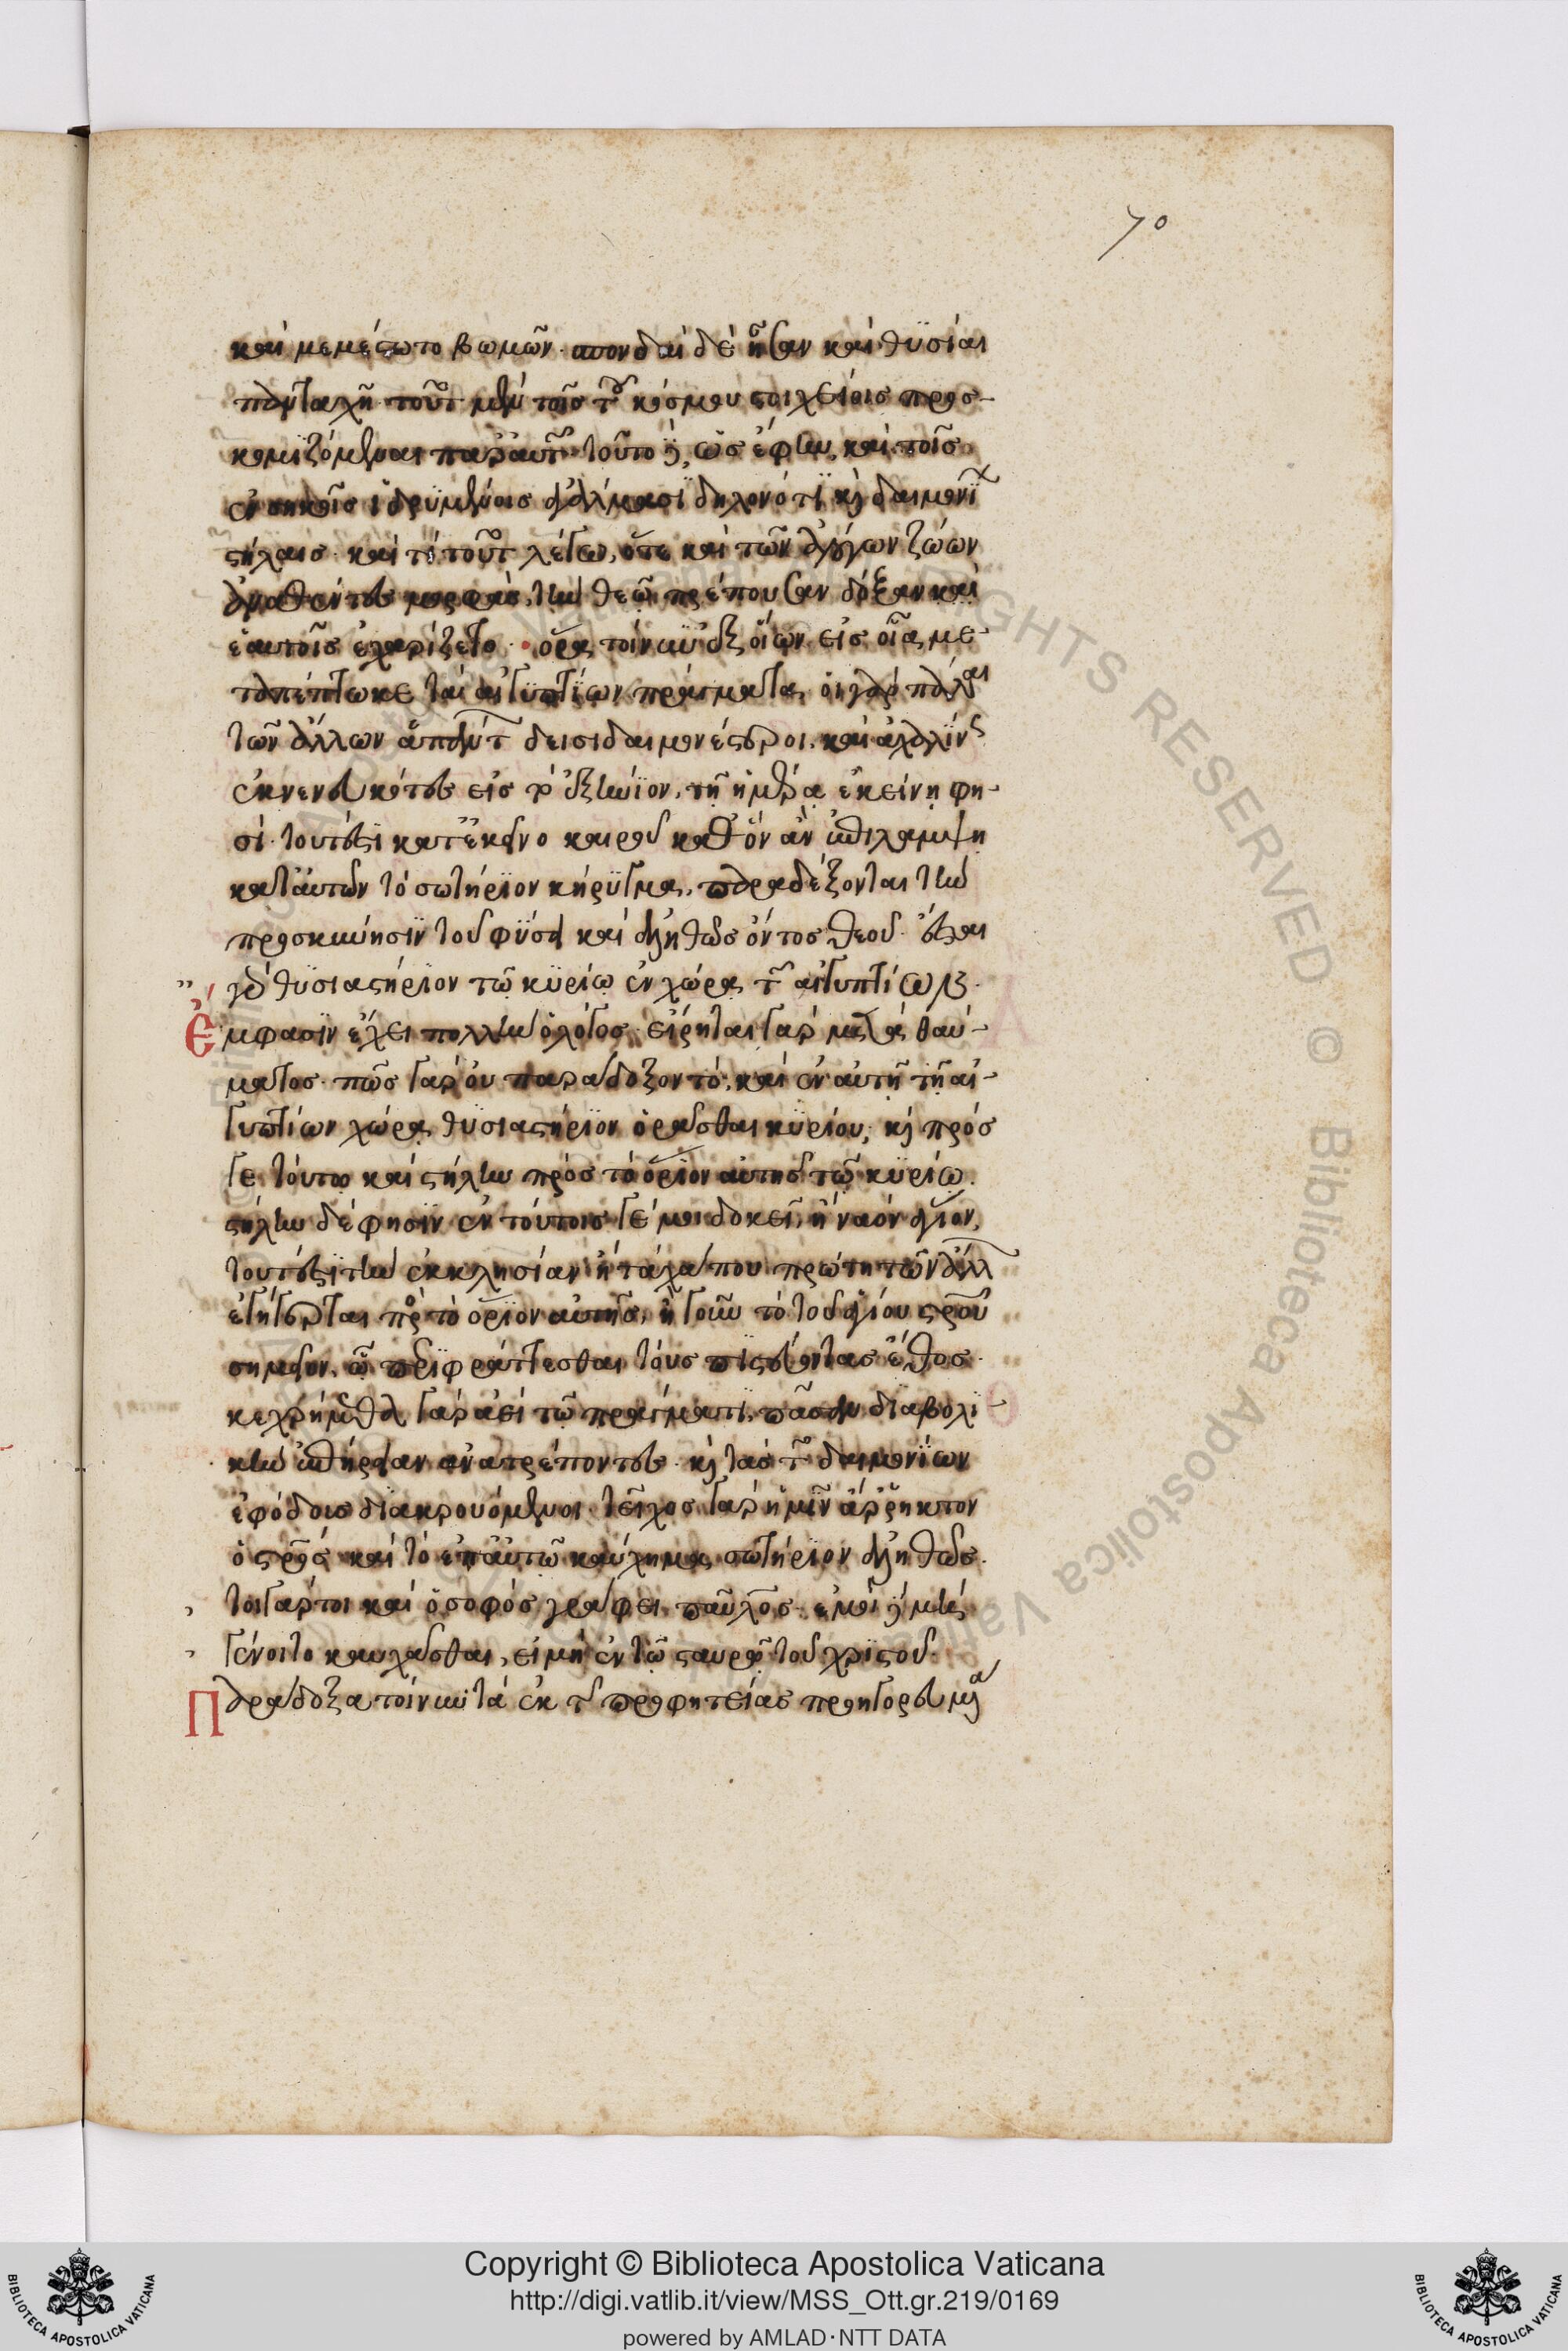 70
καὶ μεμέστωτο βωμῶν. σπονδαὶ δὲ ἦσαν καὶ θυσίαι
πανταχῆ τοῦτο μὲν τοῖς τοῦ κόσμου στοιχείοις προσ-
κομιζόμεναι παρ' αὐτῶν τοῦτο δὲ, ὡς ἔφην, καὶ τοῖς
ἐν σηκοῖς ἱδρυμένοις ἀγάλμασι δηλονότι καὶ δαιμονίων
στήλαις. καὶ τί τοῦτο λέγω, ὅτε καὶ τῶν ἀλόγων ζώων
ἀναθέντες μορφαῖς, τὴν θεῶ πρέπουσαν δόξαν καὶ
ἑαυτοῖς ἐχαρίζετο. ὅρα τοίνυν ἐξ οἵων εἰς οἷα με-
ταπέπτωκε τὰ αἰγυπτίων πράγματα, οἱ γὰρ πάλαι
τῶν ἄλλων ἁπάντων δεισιδαιμονέστεροι, καὶ ἀχάλινον
ἐκνενευκότες εἰς τὸ ἐξίτηλον, τῆ ἡμέρα ἐκείνη φη-
σί. τουτέστι κατ' ἐκεῖνο καιροῦ καθ' ὃν ἂν ἐπιλάμψη
κατ' αὐτῶν τὸ σωτήριον κήρυγμα, παραδέξονται τὴν
προσκύνησιν τοῦ φύσει καὶ ἀληθῶς ὄντος θεοῦ. ἔσται
γὰρ θυσιαστήριον τῶ κυρίω ἐν χώρα τῶν αἰγυπτίων.
Ἔμφασιν ἔχει πολλὴν ὁ λόγος. εἴρηται γὰρ μετὰ θαύ-
ματος. πῶς γὰρ οὐ παράδοξον τὸ, καὶ ἐν αὐτῆ τῆ αἰ-
γυπτίων χώρα θυσιαστήριον ὁρᾶσθαι κυρίου, καὶ πρός
γε τούτω καὶ στήλην πρὸς τὸ ὅριον αὐτῆς τῶ κυρίω.
στήλην δέ φησιν ἐν τούτοις γέ μοι δοκεῖ, ἢ ναὸν ἅγιον,
τουτέστι τὴν ἐκκλησίαν ἢ τάχα που πρώτη τῶν ἄλλων
ἐγήγερται πρὸς τὸ ὅριον αὐτῆς, ἢ γοῦν τὸ τοῦ ἁγίου σταυροῦ
σημεῖον, ὧ περιφράττεσθαι τοὺς πιστεύοντας ἔθος.
κεχρήμεθα γὰρ ἀεὶ τῶ πράγματι, πᾶσαν διαβολι-
κὴν ἐπήρειαν ἀνατρέποντες. καὶ τὰς τῶν δαιμονίων
ἐφόδοις διακρουόμενοι. τεῖχος γὰρ ἡμῖν ἄρρηκτον
ὁ σταυρός καὶ τὸ ἐπ' αὐτῶ καύχημα, σωτήριον ἀληθῶς.
τοιγάρτοι καὶ ὁ σοφὸς γράφει παῦλος. ἐμοὶ δὲ μὴ
γένοιτο καυχᾶσθαι, εἰ μὴ ἐν τῶ σταυρῶ τοῦ χριστοῦ.
Παράδοξα τοίνυν τὰ ἐκ τῆς προφητείας προηγορευμένα
Copyright © Biblioteca Apostolica Vaticana
http://digi.vatlib.it/view/MSS_Ott.gr.219/0169
powered by AMLAD·NTT DATA